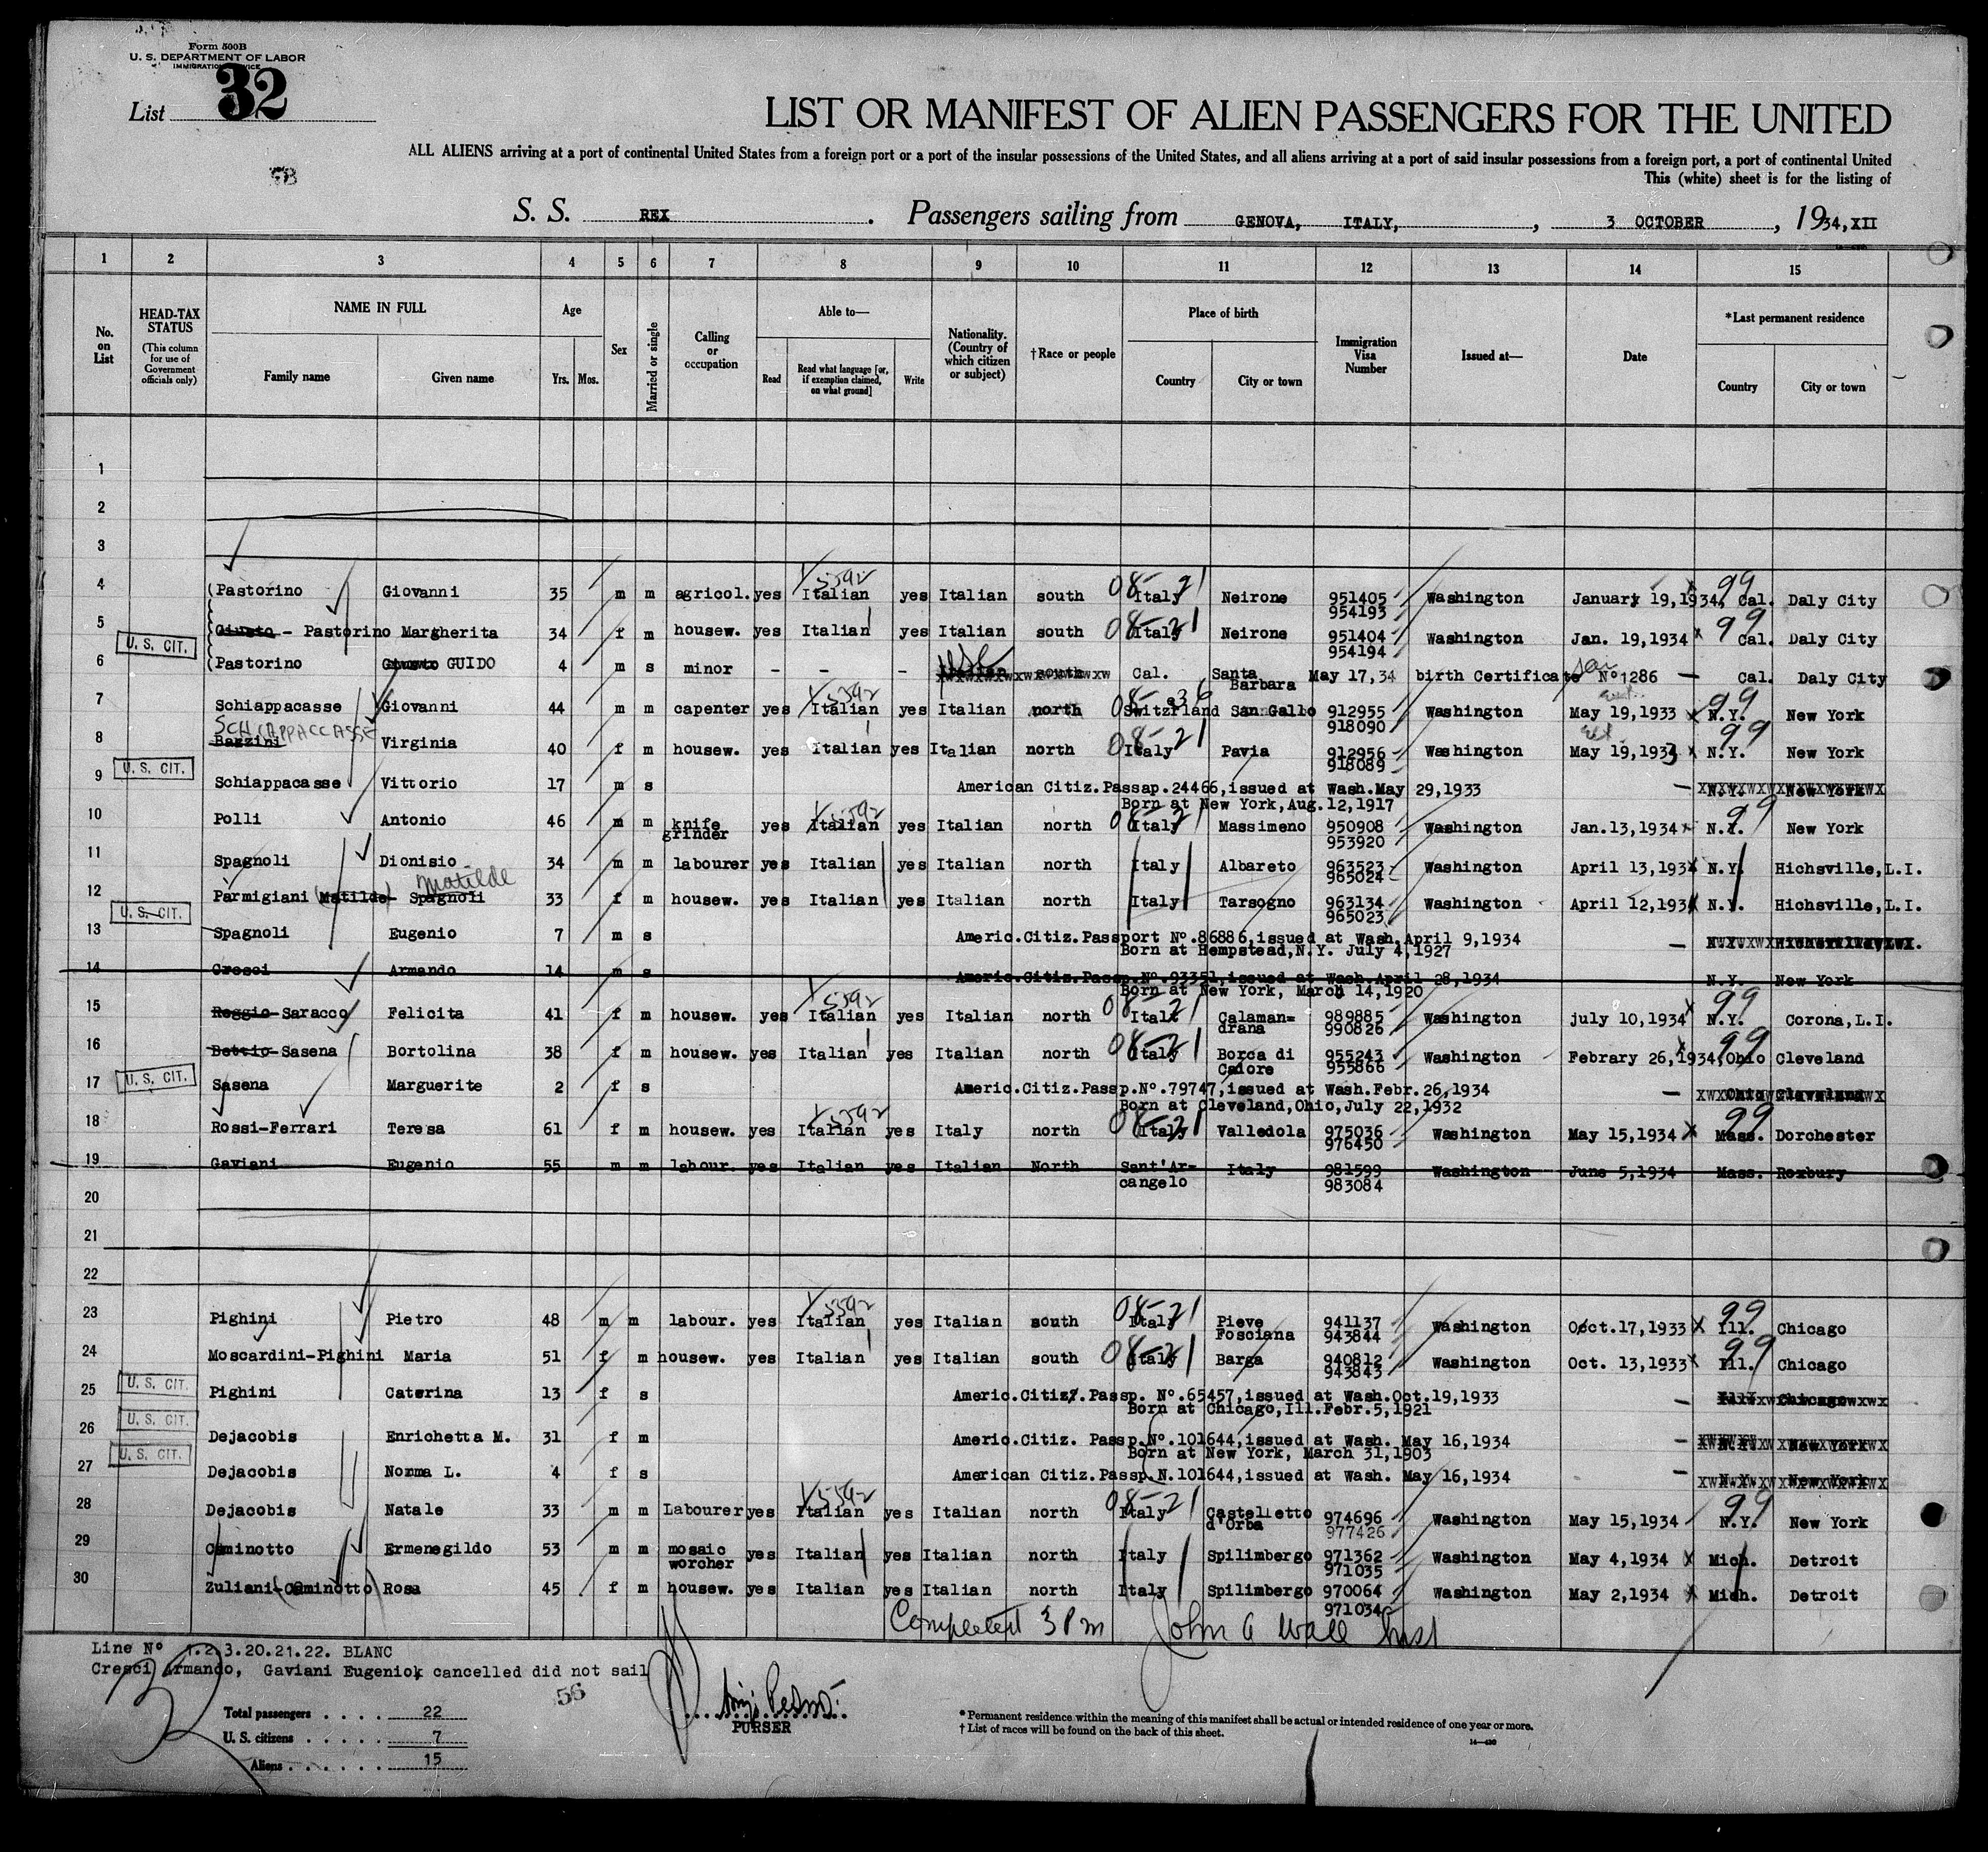 Form 500B
U. S. DEPARTMENT OF LABOR
IMMIGRATION SERVICE
List 32
LIST OR MANIFEST OF ALIEN PASSENGERS FOR THE UNITED
ALL ALIENS arriving at a port of continental United States from a foreign port or a port of the insular possessions of the United States, and all aliens arriving at a port of said insular possessions from a foreign port, a port of continental United
This (white) sheet is for the listing of
S. S. REX. Passengers sailing from GENOVA, ITALY, , 3 OCTOBER , 1934,XII
1 2 3 4 5 6 7 8 9 10 11 12 13 14 15
No. on List
HEAD-TAX STATUS (This column for use of Government officials only)
NAME IN FULL
Family name Given name
Age
Yrs. Mos.
Sex
Married or single
Calling or occupation
Able to—
Read Read what language [or, if exemption claimed, on what ground] Write
Nationality. (Country of which citizen or subject)
†Race or people
Place of birth
Country City or town
Immigration Visa Number
Issued at—
Date
*Last permanent residence
Country City or town
1
2
3
4 (Pastorino Giovanni 35 m m agricol. yes Italian yes Italian south Italy Neirone 951405 954193 Washington January 19,1934, Cal. Daly City
5 (Giusto - Pastorino Margherita 34 f m housew. yes Italian yes Italian south Italy Neirone 951404 954194 Washington Jan. 19,1934 Cal. Daly City
6 U. S. CIT. (Pastorino Giusto GUIDO 4 m s minor - - - Italian south USC Cal. Santa Barbara May 17,34 birth Certificate N°1286 — Cal. Daly City
7 Schiappacasse Giovanni 44 m m capenter yes Italian yes Italian north Switzrland San Gallo 912955 918090 Washington May 19,1933 N.Y. New York
SCHIAPPACCASSE
8 Bazzini Virginia 40 f m housew. yes Italian yes Italian north Italy Pavia 912956 918089 Washington May 19,1933 N.Y. New York
9 U. S. CIT. Schiappacasse Vittorio 17 m s American Citiz.Passap.24466,issued at Wash.May 29,1933 — N.Y. New York
Born at New York,Aug.12,1917
10 Polli Antonio 46 m m knife grinder yes Italian yes Italian north Italy Massimeno 950908 953920 Washington Jan.13,1934 N.Y. New York
11 Spagnoli Dionisio 34 m m labourer yes Italian yes Italian north Italy Albareto 963523 965024 Washington April 13,1934 N.Y. Hichsville,L.I.
Matilde
12 Parmigiani (Matilde)- Spagnoli 33 f m housew. yes Italian yes Italian north Italy Tarsogno 963134 965023 Washington April 12,1934 N.Y. Hichsville,L.I.
13 U. S. CIT. Spagnoli Eugenio 7 m s Americ.Citiz.Passport N°.86886,issued at Wash,April 9,1934 —
Born at Hempstead,N.Y. July 4,1927
14 Cresci Armando 14 m s Americ.Citiz.Passp.N°.93351,issued at Wash.April 28,1934 N.Y. New York
Born at New York, March 14,1920
15 Reggio-Saracco Felicita 41 f m housew. yes Italian yes Italian north Italy Calaman=drana 989885 990826 Washington july 10,1934 N.Y. Corona,L.I.
16 Bottio-Sasena Bortolina 38 f m housew. yes Italian yes Italian north Italy Borca di Cadore 955243 955866 Washington Febrary 26,1934, Ohio Cleveland
17 U. S. CIT. Sasena Marguerite 2 f s Americ.Citiz.Passp.N°.79747,issued at Wash.Febr.26,1934 — Ohio Cleveland
Born at Cleveland,Ohio,July 22,1932
18 Rossi-Ferrari Teresa 61 f m housew. yes Italian yes Italy north Italy Valledola 975036 976450 Washington May 15,1934 Mass. Dorchester
19 Gaviani Eugenio 55 m m labour. yes Italian yes Italian North Sant'Ar-cangelo Italy 981599 983084 Washington June 5,1934 Mass. Roxbury
20
21
22
23 Pighini Pietro 48 m m labour. yes Italian yes Italian south Italy Pieve Fosciana 941137 943844 Washington Oct.17,1933 Ill. Chicago
24 Moscardini-Pighini Maria 51 f m housew. yes Italian yes Italian south Italy Barga 940812 943843 Washington Oct. 13,1933 Ill. Chicago
25 U. S. CIT. Pighini Caterina 13 f s Americ.Citiz.Passp. N°.65457,issued at Wash.Oct.19,1933 — Ill. Chicago
Born at Chicago,Ill.Febr.5,1921
26 U. S. CIT. Dejacobis Enrichetta M. 31 f m Americ.Citiz. Passp.N°.101644,issued at Wash. May 16,1934 — N.Y. New York
Born at New York, March 31,1903
27 U. S. CIT. Dejacobis Norma L. 4 f s American Citiz.Passp.N.101644,issued at Wash. May 16,1934 — N.Y. New York
28 Dejacobis Natale 33 m m Labourer yes Italian yes Italian north Italy Castelletto d'Orba 974696 977426 Washington May 15,1934 N.Y. New York
29 Caminotto Ermenegildo 53 m m mosaic worcher yes Italian yes Italian north Italy Spilimbergo 971362 971035 Washington May 4,1934 Mich. Detroit
30 Zuliani-(Caminotto) Rosa 45 f m housew. yes Italian yes Italian north Italy Spilimbergo 970064 971034 Washington May 2,1934 Mich. Detroit
Completed 3 Pm John A Wall Insp
Line N° 1.2.3.20.21.22. BLANC
Cresci Armando, Gaviani Eugenio, cancelled did not sail
56
Total passengers . . . . 22
U. S. citizens . . . . . 7
Aliens . . . . . . 15
PURSER
* Permanent residence within the meaning of this manifest shall be actual or intended residence of one year or more.
† List of races will be found on the back of this sheet.
14—430